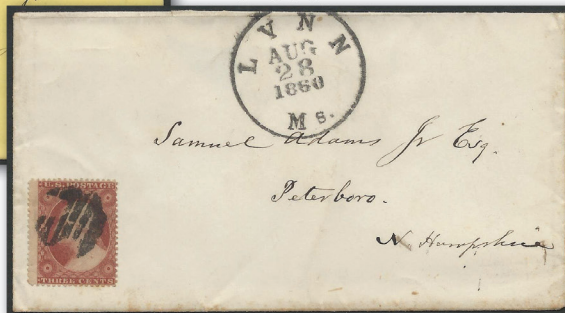 LYNN
AUG
28
1860
Ms.
Samuel Adams Jr Esq.
Peterboro.
N Hampshire
U.S. POSTAGE
THREE CENTS